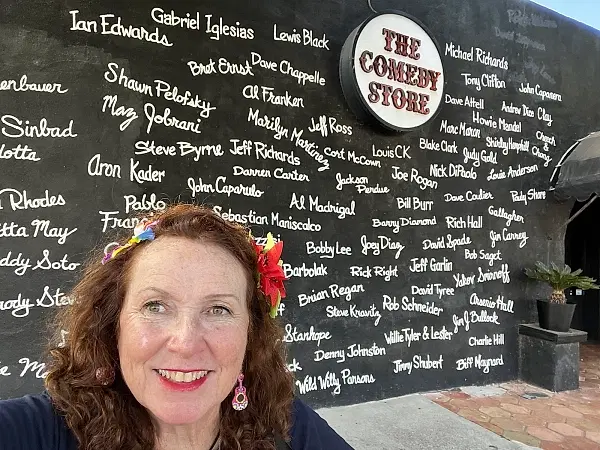 Ian Edwards
Gabriel Iglesias
Lewis Black
Bret Ernst
Dave Chappelle
Shawn Pelofsky
Al Franken
Maz Jobrani
Marilyn Martinez
Jeff Ross
Sinbad
Steve Byrne
Jeff Richards
Cort McCown
Louis CK
Aron Kader
Darren Carter
Jackson Perdue
Joe Rogan
John Caparulo
Al Madrigal
Bill Burr
Rhodes
Pablo
Sebastian Maniscalco
Barry Diamond
Bobby Lee
Joey Diaz
David Spade
Freddy Soto
Barbolak
Rick Right
Jeff Garlin
Brian Regan
David Tyree
Steve Kravitz
Rob Schneider
Stanhope
Willie Tyler & Lester
Denny Johnston
Jimmy Shubert
Wild Willy Parsons
Biff Maynard
THE
COMEDY
STORE
Michael Richards
Tony Clifton
John Caponera
Dave Attell
Andrew Dice Clay
Howie Mandel
Marc Maron
Shirley Hemphill
Cheech
& Chong
Blake Clark
Judy Gold
Nick DiPaolo
Louie Anderson
Dave Coulier
Pauly Shore
Rich Hall
Gallagher
Jim Carrey
Bob Saget
Yakov Smirnoff
Arsenio Hall
Jim J. Bullock
Charlie Hill